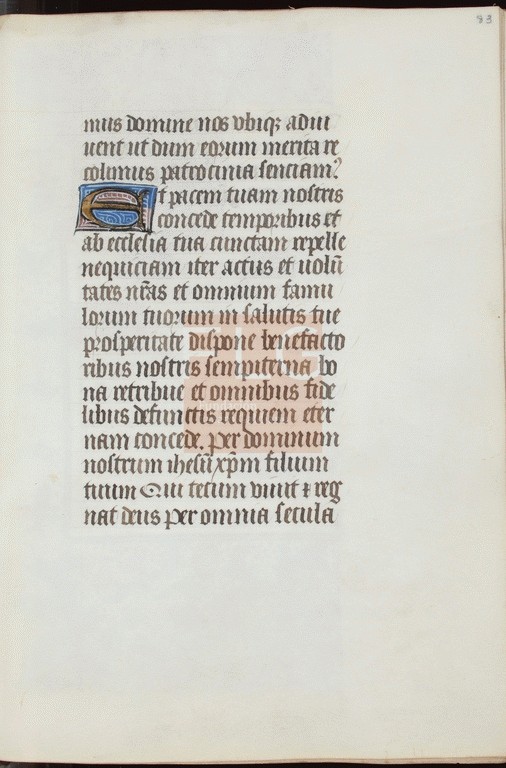 83
mus domine nos vbiqꝫ adiu
uent ut dum eorum merita re
colimus patrocinia senciam?
Et pacem tuam nostris
concede temporibus et
ab ecclesia tua cunctam repelle
nequiciam iter actus et uolū
tates nr̄as et omnium famu
lorum tuorum in salutis tue
prosperitate dispone benefacto
ribus nostris sempiterna bo
na retribue et omnibus fide
libus defunctis requiem eter
nam concede. per dominum
nostrum ihesū xp̄m filium
tuum Qui tecum viuit ꝛ reg
nat deus per omnia secula